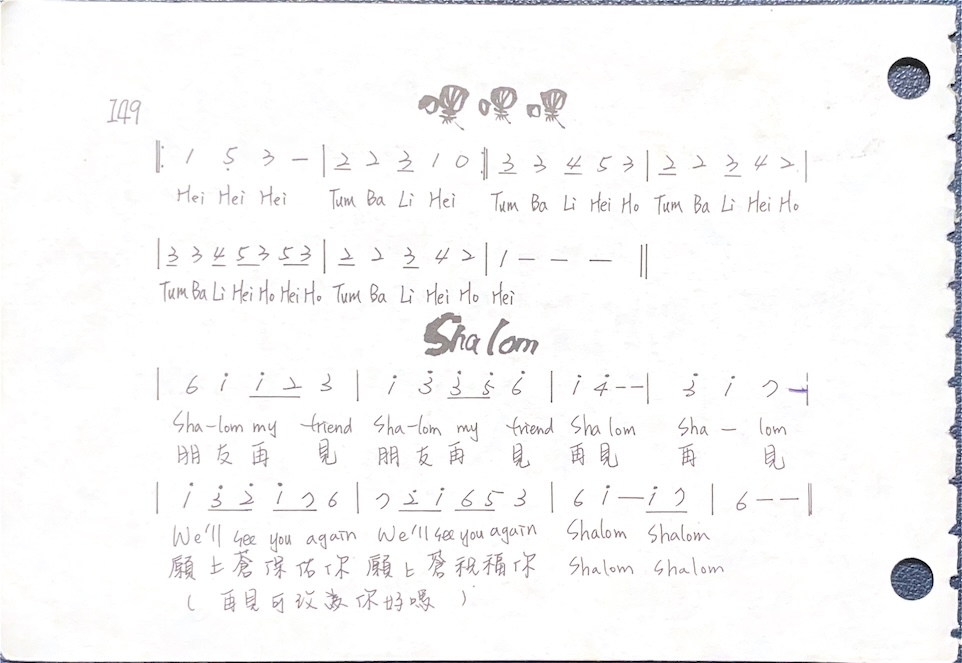 149
嘿嘿嘿
‖: 1 5̣ 3 — | 2̲ 2 3̲ 1 0 :‖ 3̲ 3 4̲ 5 3 | 2̲ 2 3̲ 4 2 |
Hei Hei Hei Tum Ba Li Hei Tum Ba Li Hei Ho Tum Ba Li Hei Ho
| 3̲ 3 4̲ 5̲ 3̲ 5̲ 3̲ | 2̲ 2 3̲ 4 2 | 1 — — — ‖
Tum Ba Li Hei Ho Hei Ho Tum Ba Li Hei Ho Hei
Shalom
| 6 i̇ i̲̇ 2̲̇ 3̇ | i̇ 3̇ 3̲̇ 5̲̇ 6̇ | i̇ 4̇ — — | 3̇ i̇ 7 — |
Sha-lom my friend Sha-lom my friend Sha lom Sha — lom
朋友再見 朋友再見 再見 再見
| i̇ 3̲̇ 2̲̇ i̲̇ 7̲ 6 | 7 2̲̇ i̲̇ 6̲ 5̲ 3 | 6 i̇ — i̲̇ 7̲ | 6 — — ‖
We'll see you again We'll see you again Shalom Shalom
願上蒼保佑你 願上蒼祝福你 Shalom Shalom
( 再見可改為你好嗎 )